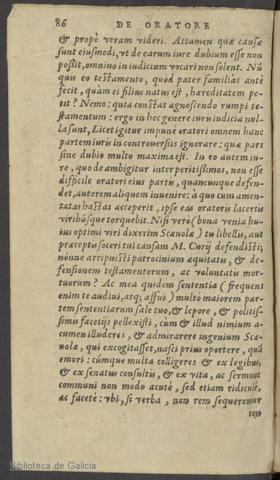 86 DE ORATORE
& propè veram videri. Attamen quæ causæ
sunt eiusmodi, vt de earum iure dubium esse non
possit, omnino in iudicium vocari non solent. Nū
quis eo testamento, quod pater familiâs antè
fecit, quàm ei filius natus est, hæreditatem pe-
tit? Nemo: quia constat agnoscendo rumpi te-
stamentum: ergo in hoc genere iuris iudicia nul-
la sunt, Licet igitur impunè oratori omnem hanc
partem iuris in controuersiis ignorare: quæ pars
sine dubio multo maxima est. In eo autem iu-
re, quo de ambigitur inter peritissimos, non esse
difficile oratori eius partis, quamcunque defen-
det, autorem aliquem inuenire: à quo cum amen-
tatas hastas acceperit, ipse eas oratoris lacertis
viribúsque torquebit. Nisi verò (bona venia hu-
ius optimi viri dixerim Scæuolæ) tu libellis, aut
præceptis soceri tui causam M. Curij defendisti,
nonne arripuisti patrocinium æquitatis, & de-
fensionem testamentorum, ac voluntatis mor-
tuorum? Ac mea quidem sententia (frequens
enim te audiui, atq; affui) multo maiorem par-
tem sententiarum sale tuo, & lepore, & politis-
simis facetijs pellexisti, cùm & illud nimium a-
cumen illuderes, & admirarere ingenium Scæ-
uolæ, qui excogitasset, nasci prius oportere, quā
emori: cúmque multa colligeres & ex legibus,
& ex senatus consultis, & ex vita, ac sermone
communi non modo acutè, sed etiam ridiculè,
ac facetè: vbi, si verba, non rem sequeremur
con
Biblioteca de Galicia